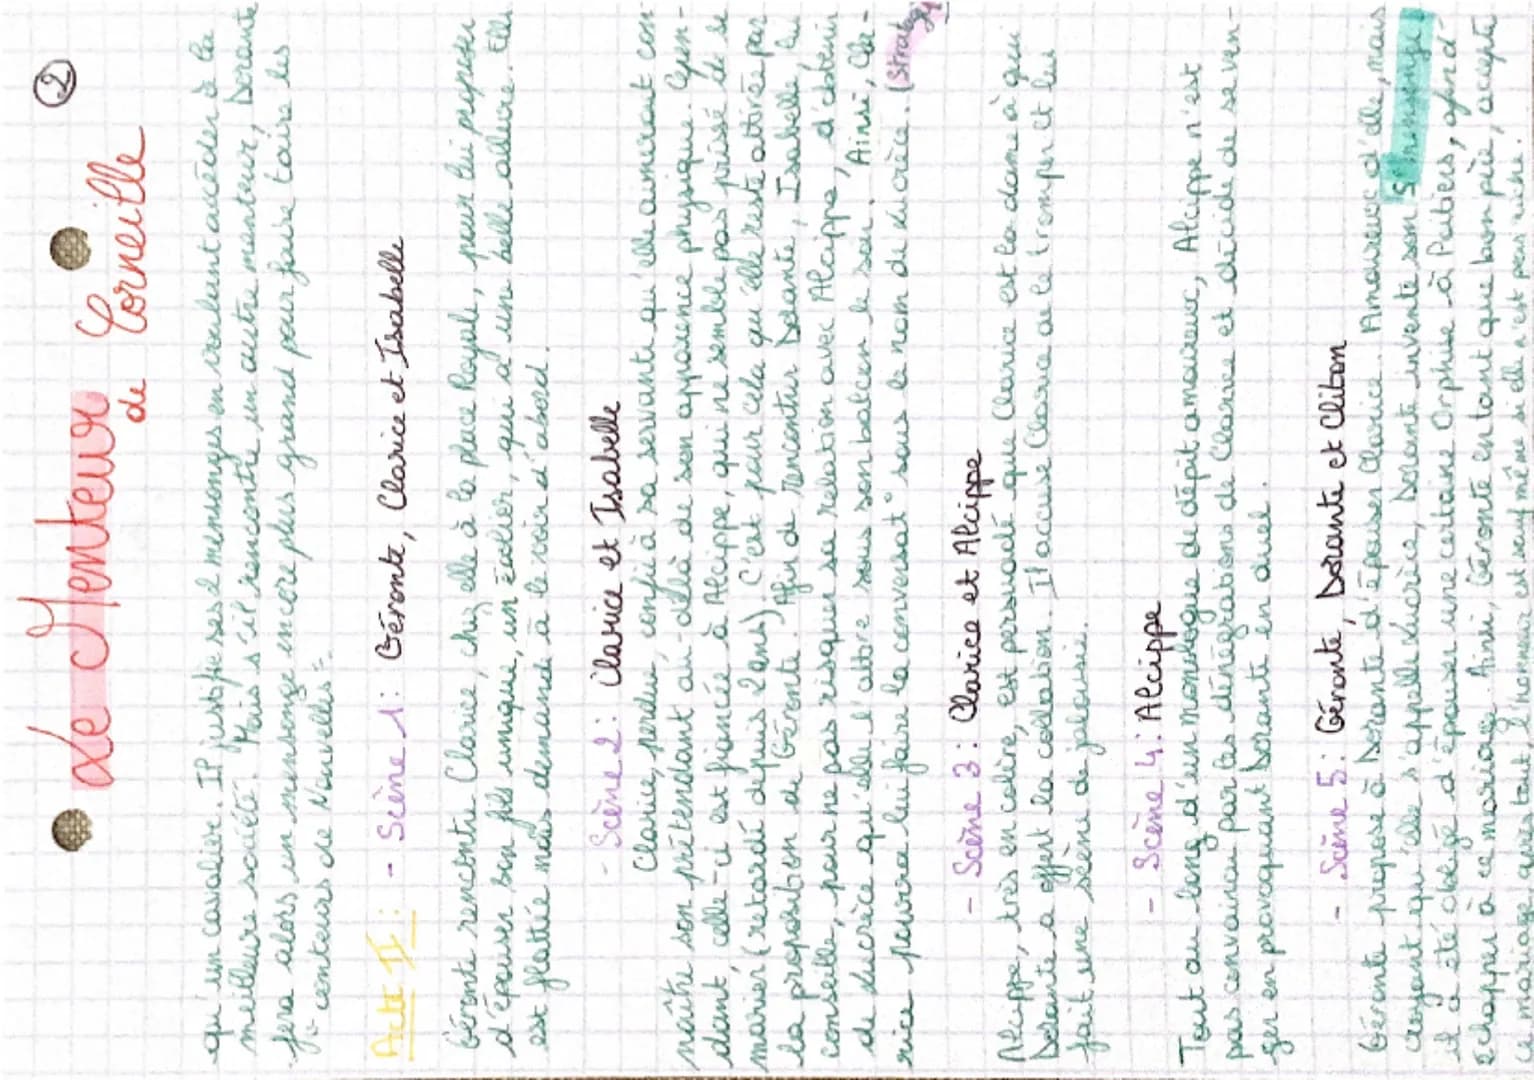 ②
Le Menteur
de Corneille
qu'un cavalier. Il justifie ses mensonges en voulant accéder à la
meilleure société. Mais s'il rencontre un autre menteur, Dorante
fera alors un mensonge encore plus grand pour faire taire les
conteurs de Nouvelles".
Acte II : - Scène 1 : Géronte, Clarice et Isabelle
Géronte rencontre Clarice, chez elle à la place Royale, pour lui
d'épouser son fils unique, un écolier, qui a une belle allure. Elle
est flattée mais demande à le voir d'abord.
- Scène 2 : Clarice et Isabelle
Clarice, perdue, confie à sa servante qu'elle aimerait con-
naître son prétendant au-delà de son apparence physique. Cepen-
dant, celle-ci est fiancée à Alcippe, qui ne semble pas pressé de se
marier (retardé depuis 2 ans). C'est pour cela qu'elle reste attirée par
la proposition de Géronte. Afin de rencontrer Dorante, Isabelle lui
conseille, pour ne pas risquer sa relation avec Alcippe, d'obtenir
de Lucrèce qu'elle l'attire sous son balcon le soir. Ainsi, Cla-
rice pourra lui faire la conversat° sous le nom de Lucrèce. (Stratagè
- Scène 3 : Clarice et Alcippe
Alcippe, très en colère, est persuadé que Clarice est la dame à qui
Dorante a offert la collation. Il accuse Clarice de le tromper et lui
fait une scène de jalousie.
- Scène 4 : Alcippe
Tout au long d'un monologue de dépit amoureux, Alcippe n'est
pas convaincu par les dénégations de Clarice et décide de se ven-
ger en provoquant Dorante en duel.
- Scène 5 : Géronte, Dorante et Cliton
Géronte propose à Dorante d'épouser Clarice. Amoureux d'elle, mais
croyant qu'elle s'appelle Lucrèce, Dorante invente son 5e mensonge :
il a été obligé d'épouser une certaine Orphise à Poitiers, afin d'
échapper à ce mariage. Ainsi, Géronte en tant que bon père, accepte
ce mariage après tout, l'honneur est sauf même si elle n'est pas riche.